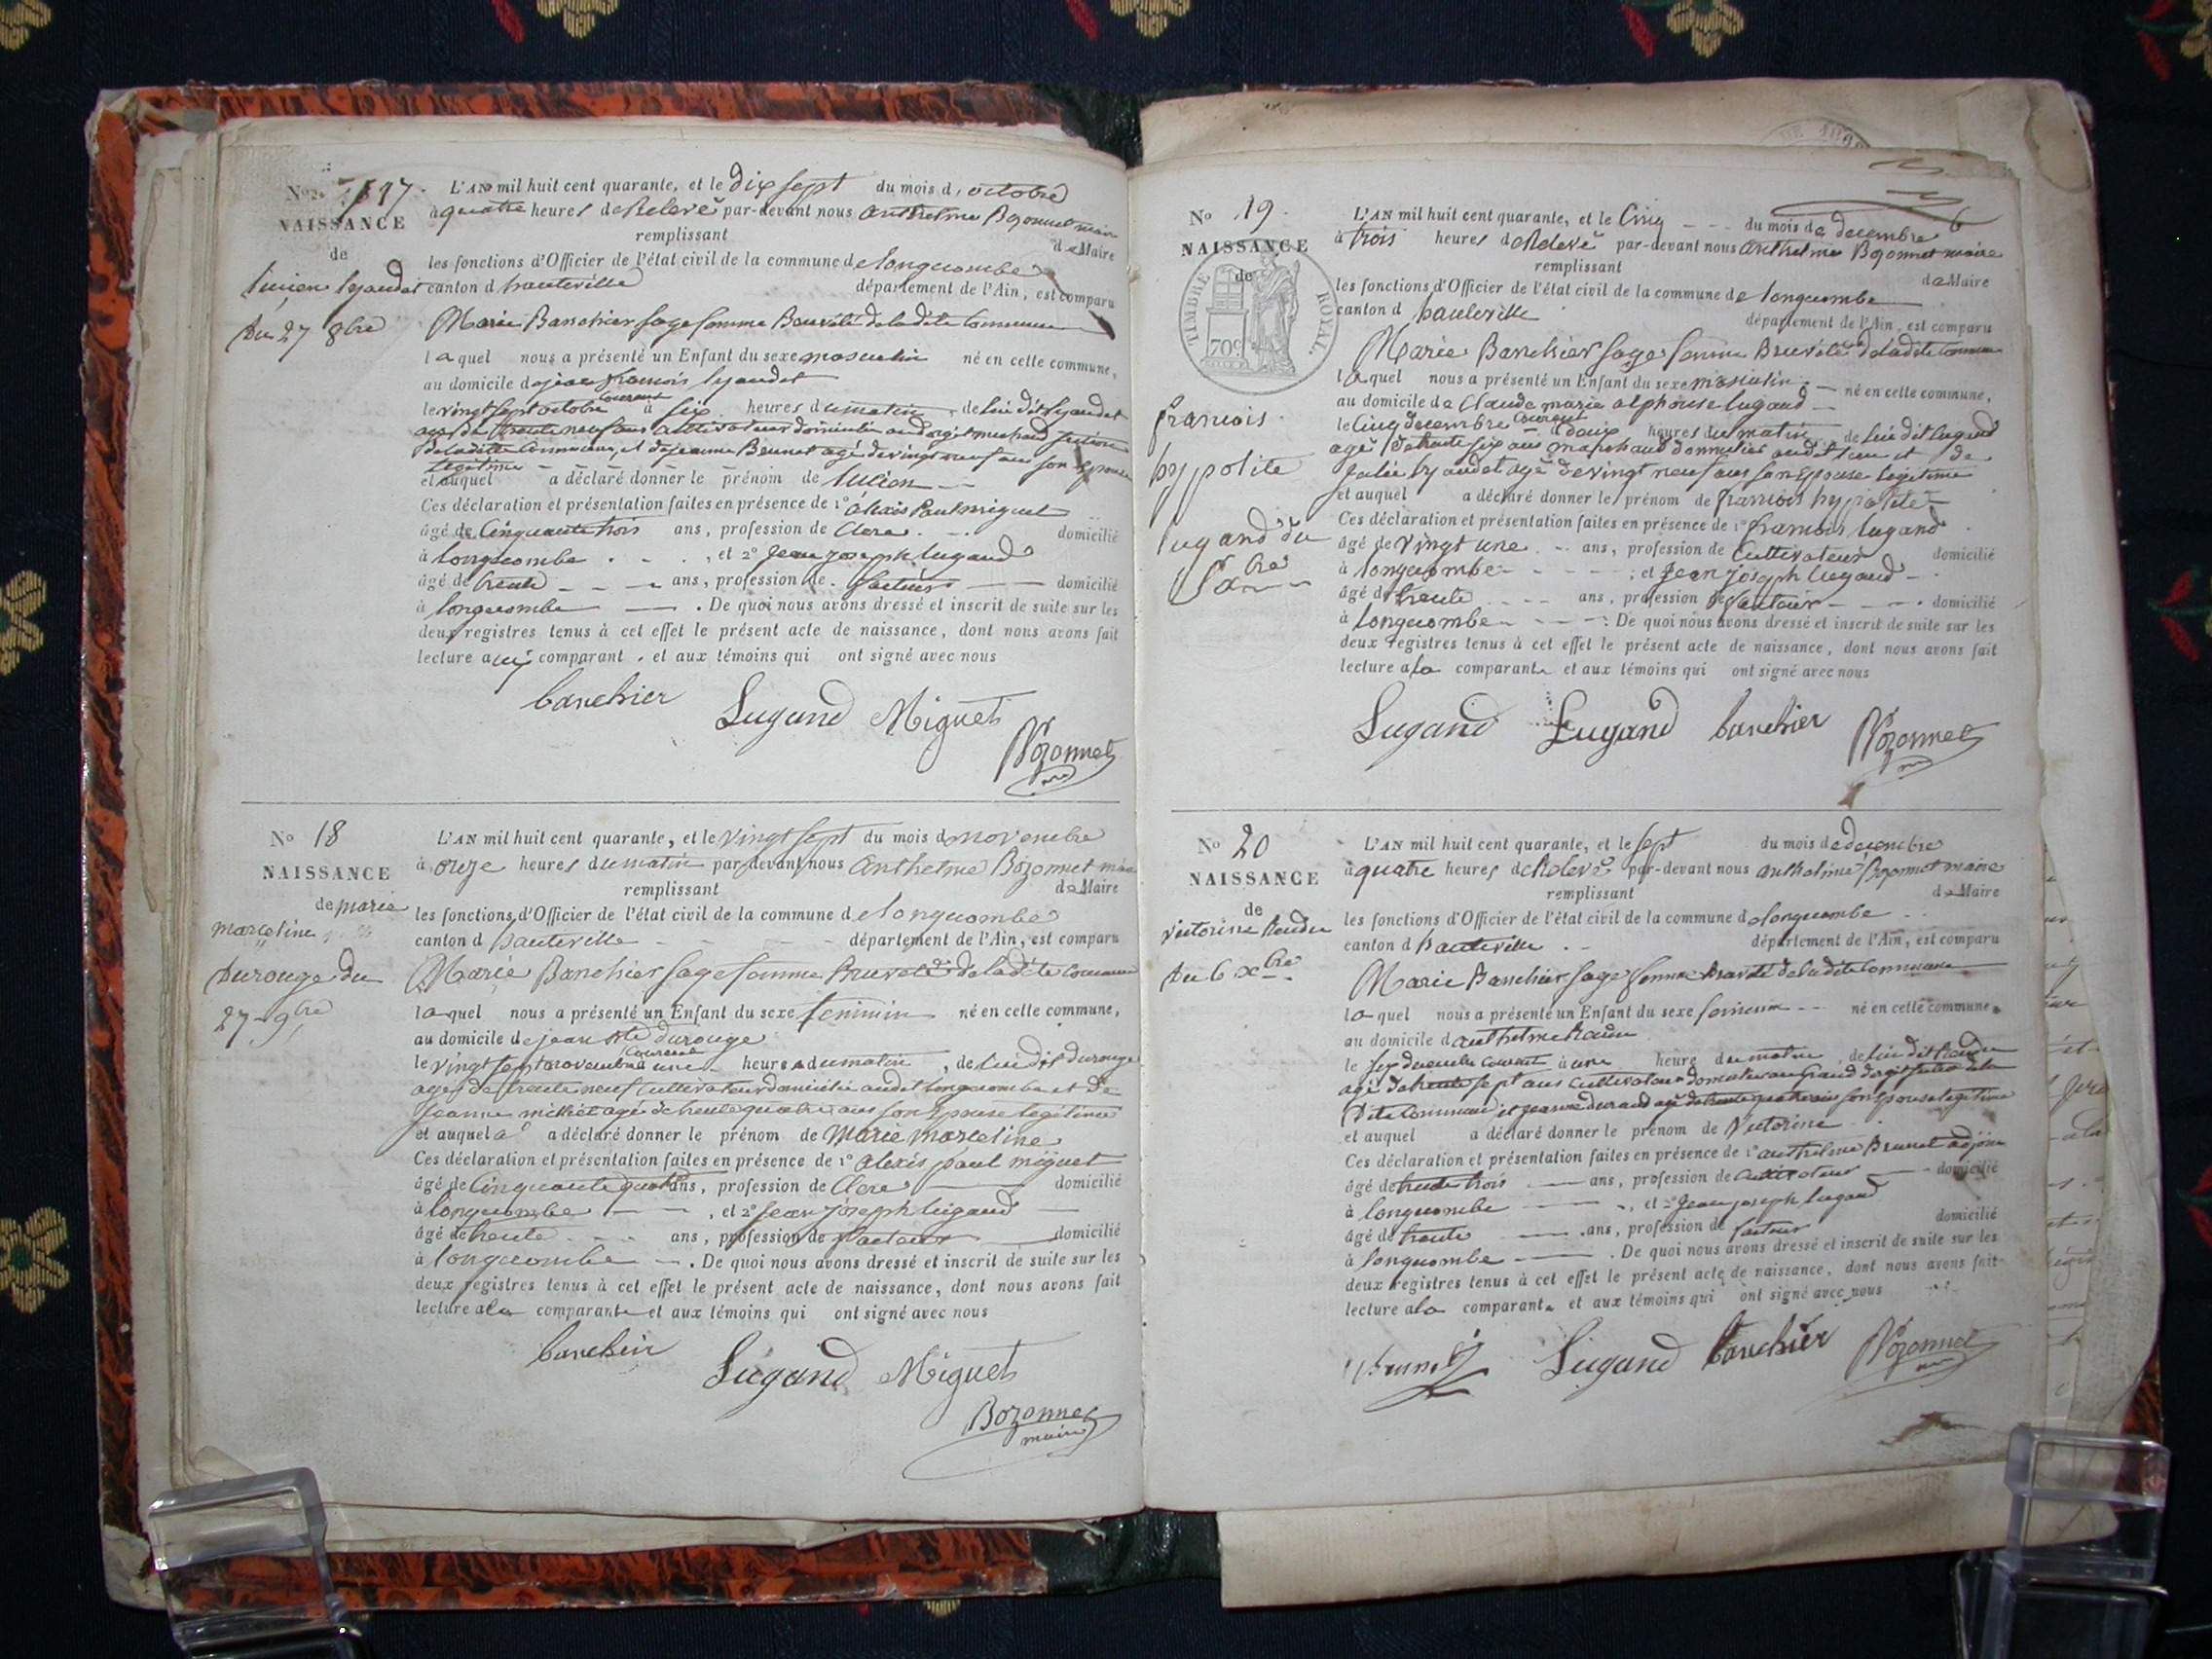 No 17.
NAISSANCE
de
lucien lyaudet
Du 27 8bre
L'AN mil huit cent quarante, et le dix sept du mois d'octobre
à quatre heures de Relevé par-devant nous anthelme Bozonnet maire
remplissant
les fonctions d'Officier de l'état civil de la commune de longecombe de Maire
canton d hauteville département de l'Ain, est comparu
Marie Banchier sage femme Brevété de ladite Commune
laquel nous a présenté un Enfant du sexe masculin né en cette commune,
au domicile de jean francois lyaudet
courant
le vingt sept octobre à six heures du matin, de lui dit lyaudet
agé de trente neuf ans cultivateur domicilié
de ladite Commune, et de jeanne Brunet agé de vingt neuf ans son Epouse
legitime
et auquel a déclaré donner le prénom de lucien
Ces déclaration et présentation faites en présence de 1º alexis Paul miguet
âgé de Cinquante trois ans, profession de Clerc domicilié
à longecombe, et 2º jean joseph lugand
âgé de trente ans, profession de facteur domicilié
à longecombe. De quoi nous avons dressé et inscrit de suite sur les
deux registres tenus à cet effet le présent acte de naissance, dont nous avons fait
lecture aux comparant. et aux témoins qui ont signé avec nous
banchier Lugand Miguet
Bozonnet
No 18
NAISSANCE
de marie
marceline
Durouge du
27 9bre
L'AN mil huit cent quarante, et le vingt sept du mois d novembre
à onze heures du matin par devant nous anthelme Bozonnet maire
remplissant de Maire
les fonctions d'Officier de l'état civil de la commune de longecombe
canton d hauteville département de l'Ain, est comparu
Marie Banchier sage femme Brevété de ladite Commune
laquel nous a présenté un Enfant du sexe feminin né en cette commune,
au domicile de jean durouge
courant
le vingt sept novembre à une heure du matin, de lui dit durouge
agé de trente neuf cultivateur domicilié audit longecombe et de
jeanne agé de trente quatre ans son Epouse legitime
et auquel a déclaré donner le prénom de Marie marceline
Ces déclaration et présentation faites en présence de 1º alexis paul miguet
âgé de Cinquante quatre ans, profession de Clerc domicilié
à longecombe, et 2º jean joseph lugand
âgé de trente ans, profession de facteur domicilié
à longecombe. De quoi nous avons dressé et inscrit de suite sur les
deux registres tenus à cet effet le présent acte de naissance, dont nous avons fait
lecture a la comparante et aux témoins qui ont signé avec nous
banchier Lugand Miguet
Bozonnet
maire
No 19
NAISSANCE
de
TIMBRE ROYAL.
70c
francois
hyppolite
lugand du
5 Xbre
L'AN mil huit cent quarante, et le Cinq du mois de decembre
à trois heures de Relevé par-devant nous anthelme Bozonnet maire
remplissant de Maire
les fonctions d'Officier de l'état civil de la commune de longecombe
canton d hauteville département de l'Ain, est comparu
Marie Banchier sage femme Brevété de ladite Commune
laquel nous a présenté un Enfant du sexe masculin né en cette commune,
au domicile de Claude marie alphonse lugand
courant
le Cinq decembre à douze heures du matin, de lui dit lugand
agé de trente six ans marchand domicilié audit lieu et de
julie lyaudet agé de vingt neuf ans son Epouse legitime
et auquel a déclaré donner le prénom de francois hypolite
Ces déclaration et présentation faites en présence de 1º francois lugand
âgé de vingt une ans, profession de Cultivateur domicilié
à longecombe; et jean joseph lugand
âgé de trente ans, profession de facteur domicilié
à longecombe: De quoi nous avons dressé et inscrit de suite sur les
deux registres tenus à cet effet le présent acte de naissance, dont nous avons fait
lecture a la comparante et aux témoins qui ont signé avec nous
Lugand Lugand banchier Bozonnet
No 20
NAISSANCE
de
victorine
Du 6 Xbre
L'AN mil huit cent quarante, et le sept du mois de decembre
à quatre heures de Relevé par-devant nous anthelme Bozonnet maire
remplissant de Maire
les fonctions d'Officier de l'état civil de la commune de longecombe
canton d hauteville département de l'Ain, est comparu
Marie Banchier sage femme Brevété de ladite Commune
laquel nous a présenté un Enfant du sexe feminin né en cette commune,
au domicile d anthelme
le six decembre courant à une heure du matin, de lui dit
agé de trente sept ans cultivateur domicilié
Dite Commune et jeanne durand agé de trente quatre ans son Epouse legitime
et auquel a déclaré donner le prénom de victorine
Ces déclaration et présentation faites en présence de 1º anthelme Brunet adjoint
âgé de trente trois ans, profession de cultivateur domicilié
à longecombe, et 2º jean joseph lugand
âgé de trente ans, profession de facteur domicilié
à longecombe. De quoi nous avons dressé et inscrit de suite sur les
deux registres tenus à cet effet le présent acte de naissance, dont nous avons fait
lecture a la comparante et aux témoins qui ont signé avec nous
Brunet Lugand banchier Bozonnet